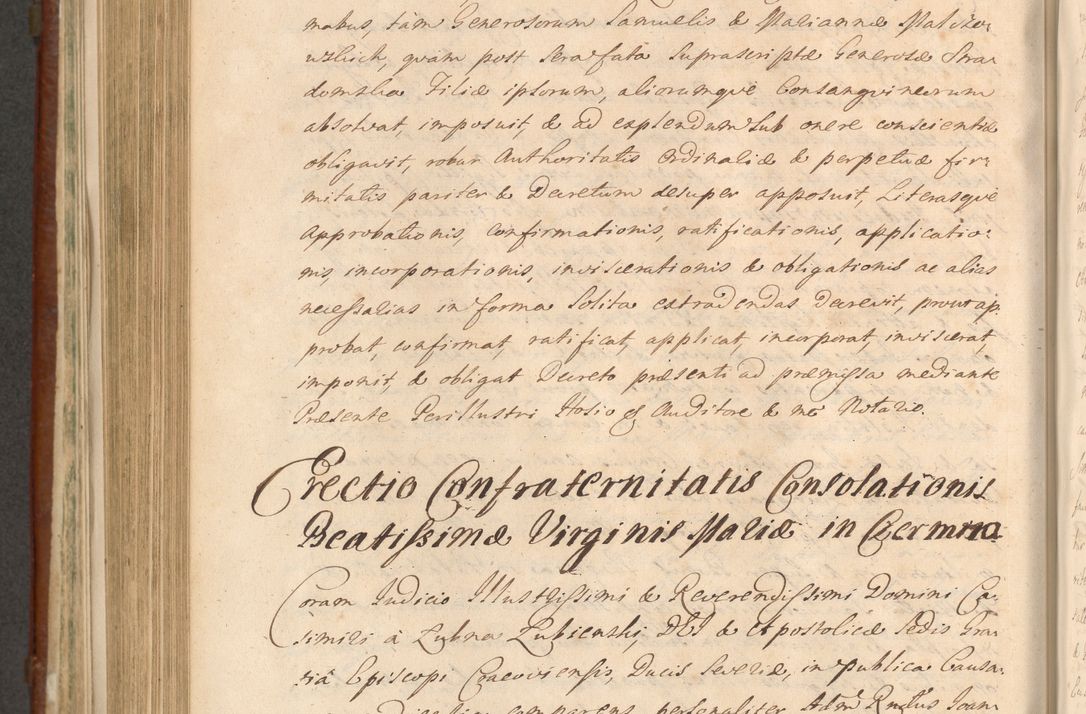 mabus, tàm Generosorum Samuelis & Mariannæ Malicze:
wskich, quàm post sera fata supra scriptæ Generosæ Stra:
domska Filiæ ipsorum, aliorumquè Consangvineorum
absolvat, imposuit, & ad explendum sub onere conscientiæ
obligavit, robur Authoritatis Ordinariæ & perpetuæ fir:
mitatis pariter & Decretum desuper apposuit, Literasquè
Approbationis, confirmationis, ratificationis, applicatio:
nis, incorporationis, inviscerationis & obligationis ac alias
necessarias in forma solita extradendas decrevit, prout ap:
probat, confirmat, ratificat, applicat, incorporat, inviscerat,
imponit, & obligat Decreto præsenti ad præmissa mediante
Præsente Perillustri Hosio & Auditore & me Notario.
Erectio Confraternitatis Consolationis
Beatissimæ Virginis Mariæ in Czermna
Coram Iudicio Illustrissimi & Reverendissimi Domini Ca:
simiri à Łubna Łubienski, DEI & Apostolicæ Sedis Gra:
tiâ Episcopi Cracoviensis, Ducis Severiæ, in publica Causa:
comparens personaliter Adm. Rndus Ioan